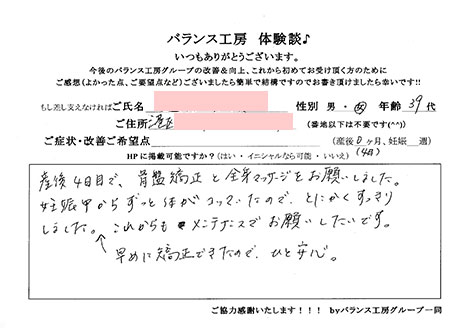 バランス工房 体験談♪
いつもありがとうございます。
今後のバランス工房グループの改善&向上、これから初めてお受け頂く方のために
ご感想(よかった点、ご要望点など)ございましたら簡単で結構ですのでお書き頂けましたら幸いです!!
もし差し支えなければご氏名 性別 男・女 年齢 39 代
ご住所 港区 (番地以下は不要です(^^))
ご症状・改善ご希望点 (産後 0 ヶ月、妊娠 週)
HPに掲載可能ですか?(はい・イニシャルなら可能・いいえ) (4日)
産後4日目で、骨盤矯正と全身マッサージをお願いしました。
妊娠中からずっと体がコっていたので、とにかくすっきり
しました。これからもメンテナンスでお願いしたいです。
↑早めに矯正できたので、ひと安心。
ご協力感謝いたします!!! byバランス工房グループ一同